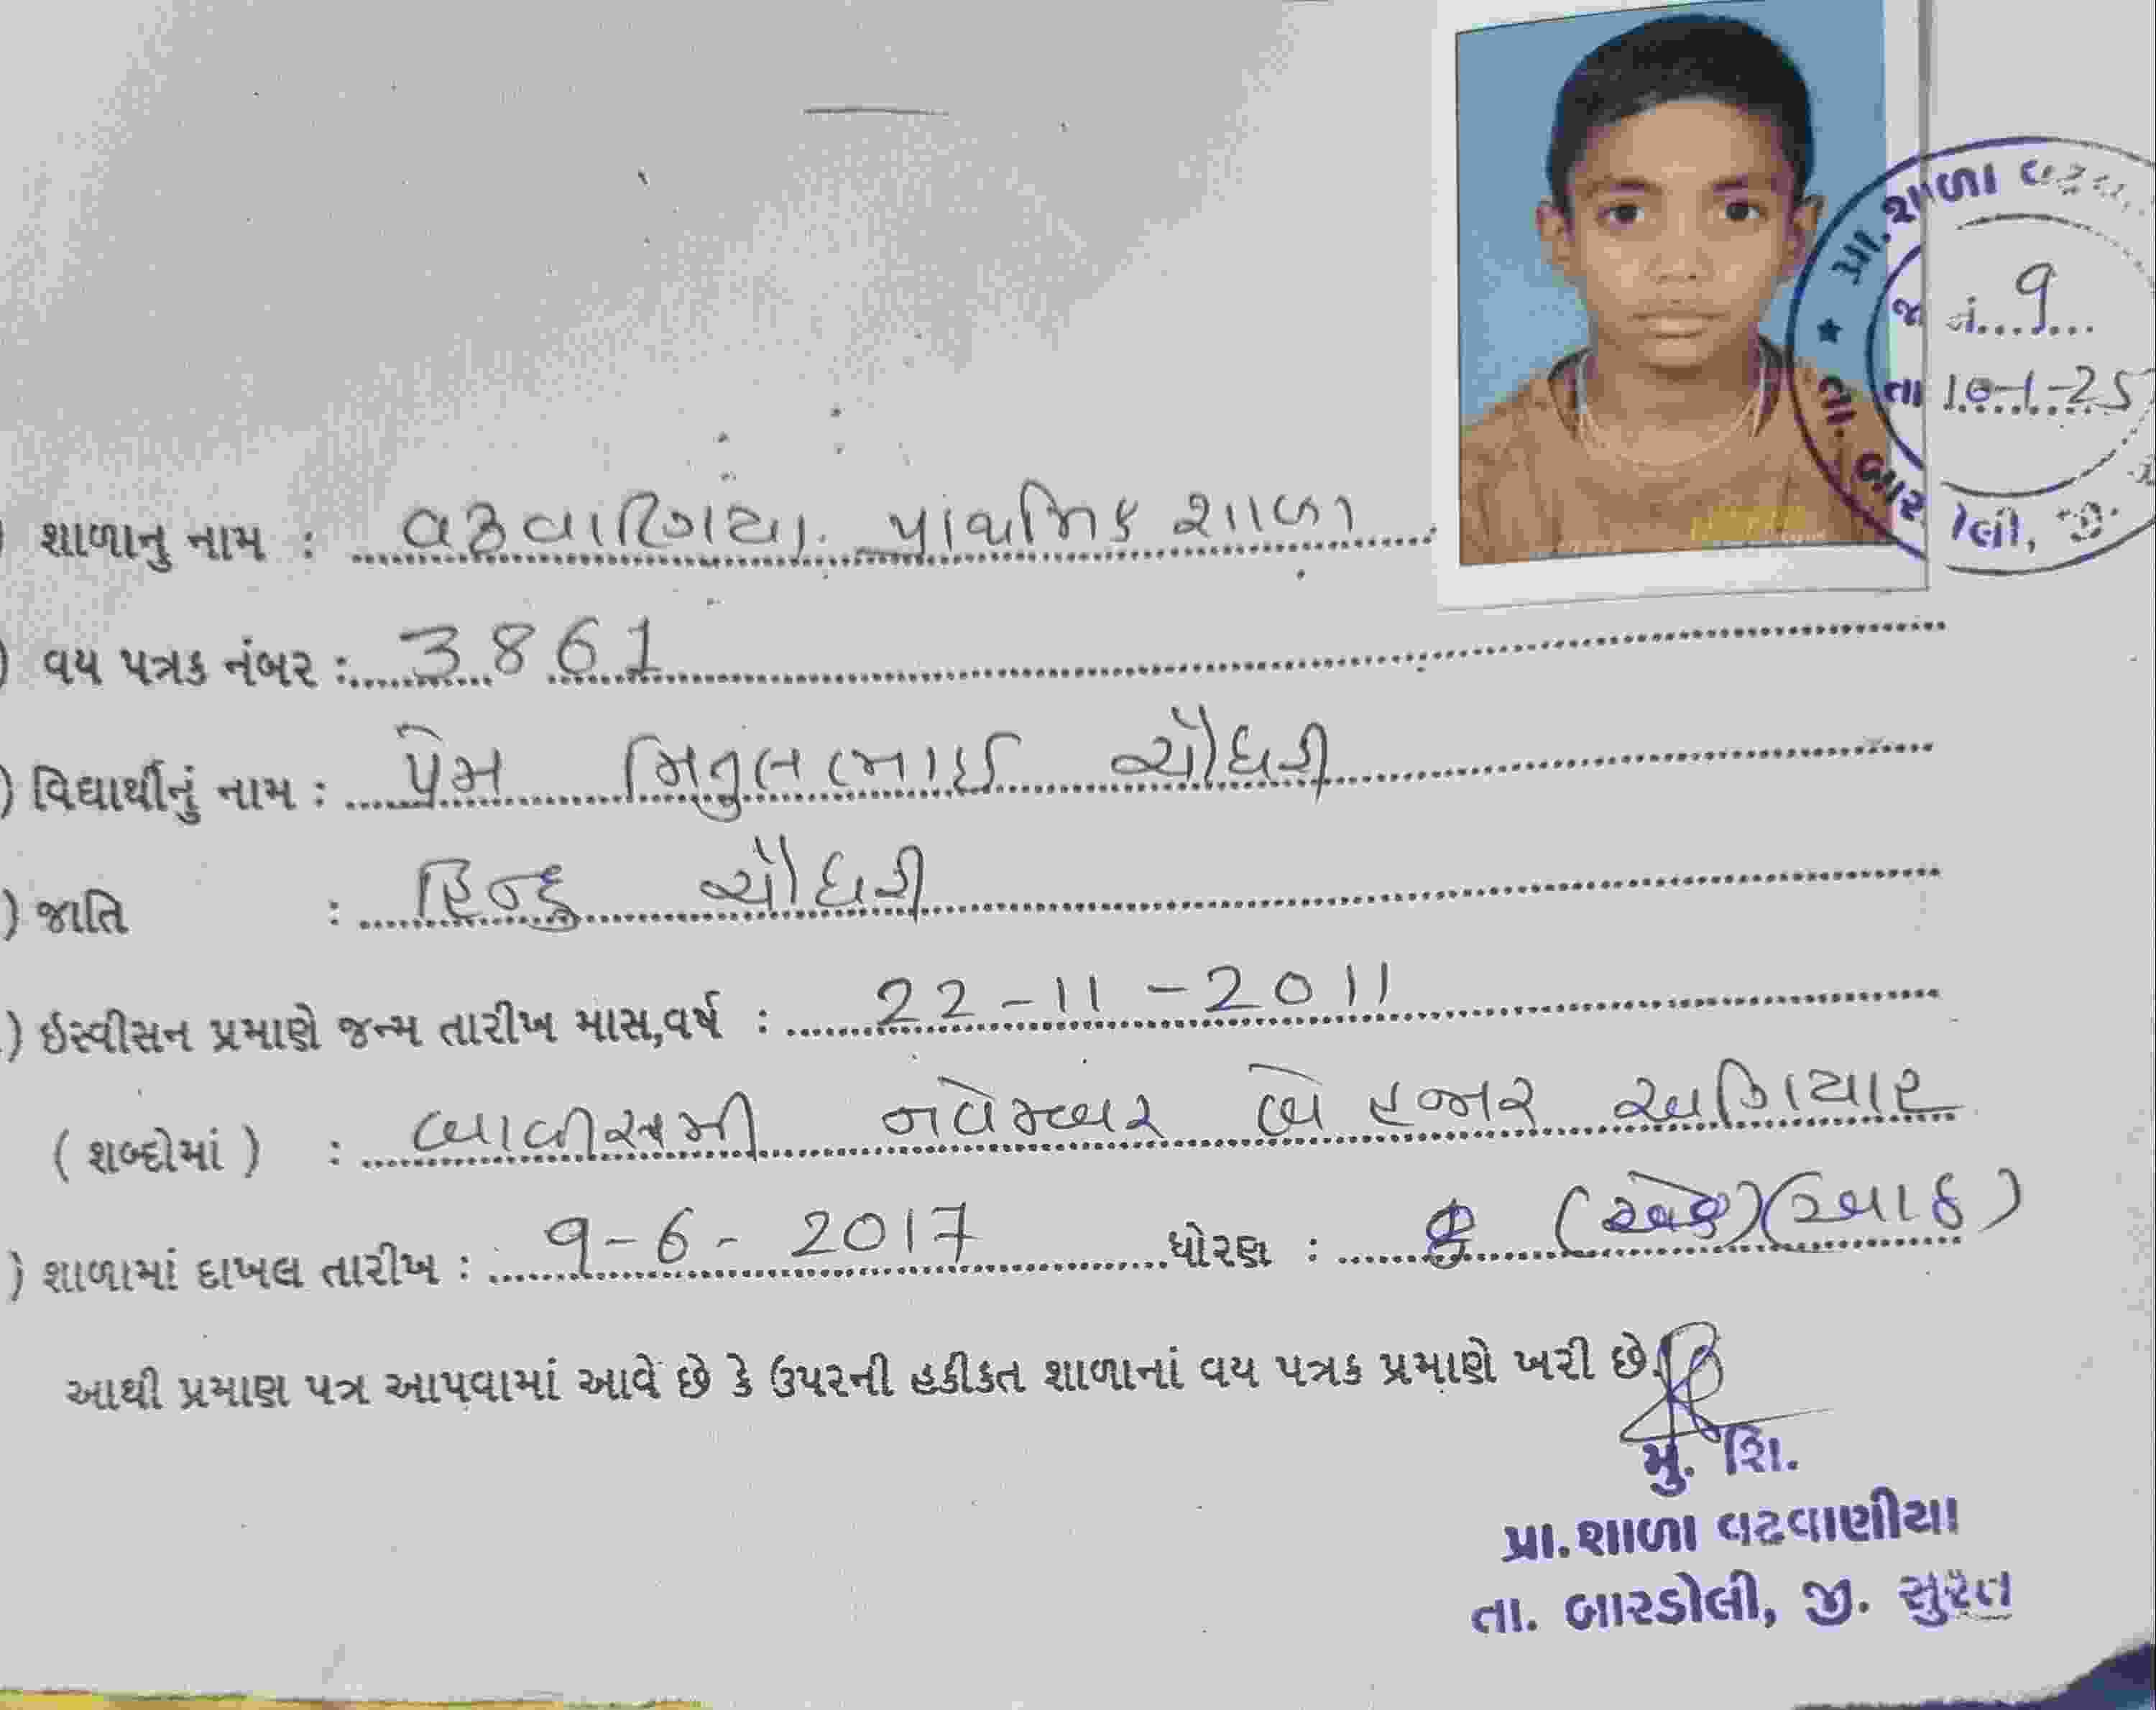 પ્રા. શાળા
જા નં. 9
તા 10-1-25
તા. બારડોલી, જી.
શાળાનુ નામ : પ્રાથમિક શાળા
વય પત્રક નંબર : 3861
) વિદ્યાર્થીનું નામ : પ્રેમ મિતુલભાઈ ચૌધરી
) જાતિ : હિન્દુ ચૌધરી
) ઇસ્વીસન પ્રમાણે જન્મ તારીખ માસ,વર્ષ : 22-11-2011
( શબ્દોમાં ) : બાવીસમી નવેમ્બર બે હજાર અગિયાર
) શાળામાં દાખલ તારીખ : 9-6-2017 ધોરણ : (આઠ)
આથી પ્રમાણ પત્ર આપવામાં આવે છે કે ઉપરની હકીકત શાળાનાં વય પત્રક પ્રમાણે ખરી છે.
મુ. શિ.
પ્રા.શાળા વઢવાણીયા
તા. બારડોલી, જી. સુરત